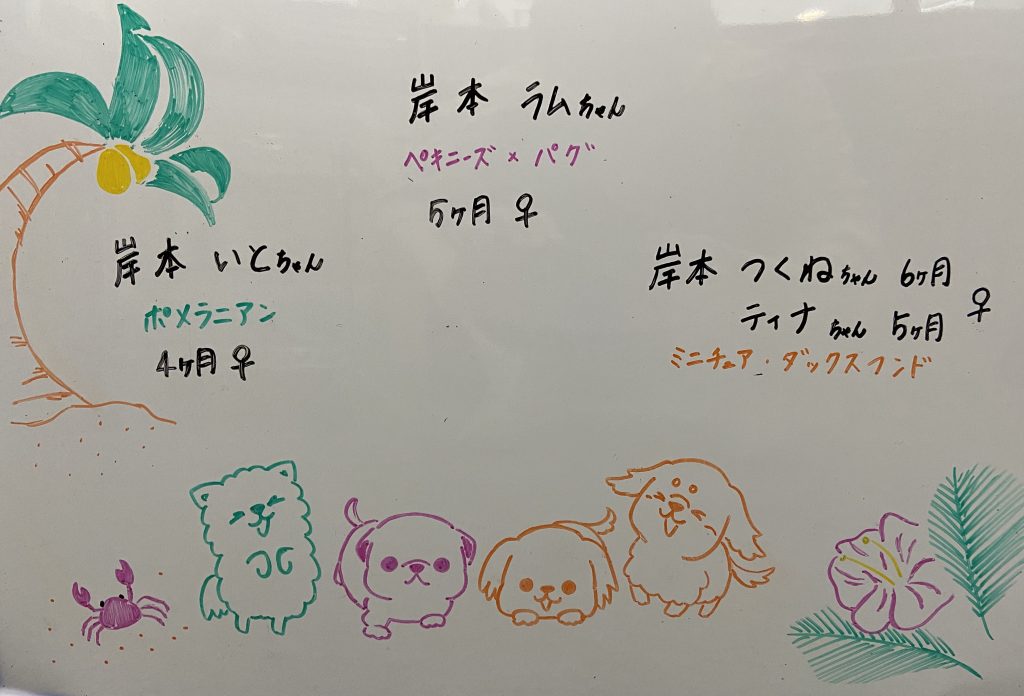 岸本 ラムちゃん
ペキニーズ × パグ
5ヶ月 ♀
岸本 いとちゃん
ポメラニアン
4ヶ月 ♀
岸本 つくねちゃん 6ヶ月
ティナちゃん 5ヶ月 ♀
ミニチュア・ダックスフンド